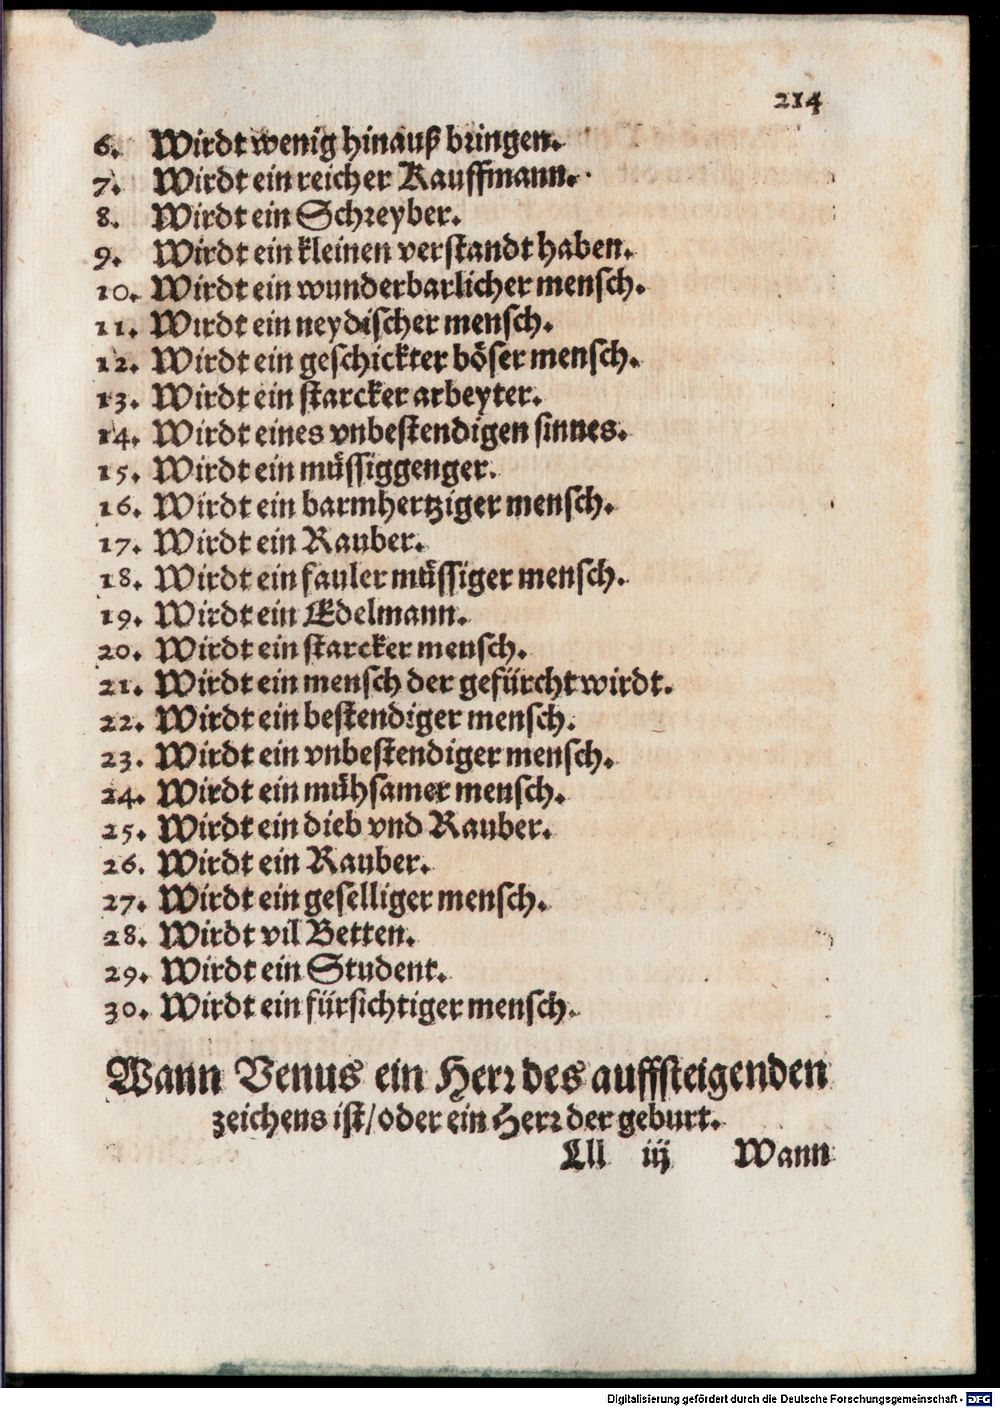 214
6. Wirdt wenig hinauß bringen.
7. Wirdt ein reicher Kauffmann.
8. Wirdt ein Schreyber.
9. Wirdt ein kleinen verstandt haben.
10. Wirdt ein wunderbarlicher mensch.
11. Wirdt ein neydischer mensch.
12. Wirdt ein geschickter böser mensch.
13. Wirdt ein starcker arbeyter.
14. Wirdt eines vnbestendigen sinnes.
15. Wirdt ein müssiggenger.
16. Wirdt ein barmhertziger mensch.
17. Wirdt ein Rauber.
18. Wirdt ein fauler müssiger mensch.
19. Wirdt ein Edelmann.
20. Wirdt ein starcker mensch.
21. Wirdt ein mensch der gefürcht wirdt.
22. Wirdt ein bestendiger mensch.
23. Wirdt ein vnbestendiger mensch.
24. Wirdt ein mühsamer mensch.
25. Wirdt ein dieb vnd Rauber.
26. Wirdt ein Rauber.
27. Wirdt ein geselliger mensch.
28. Wirdt vil Betten.
29. Wirdt ein Student.
30. Wirdt ein fürsichtiger mensch.
Wann Venus ein Herr des auffsteigenden
zeichens ist/ oder ein Herr der geburt.
Lll iij Wann
Digitalisierung gefördert durch die Deutsche Forschungsgemeinschaft - DFG